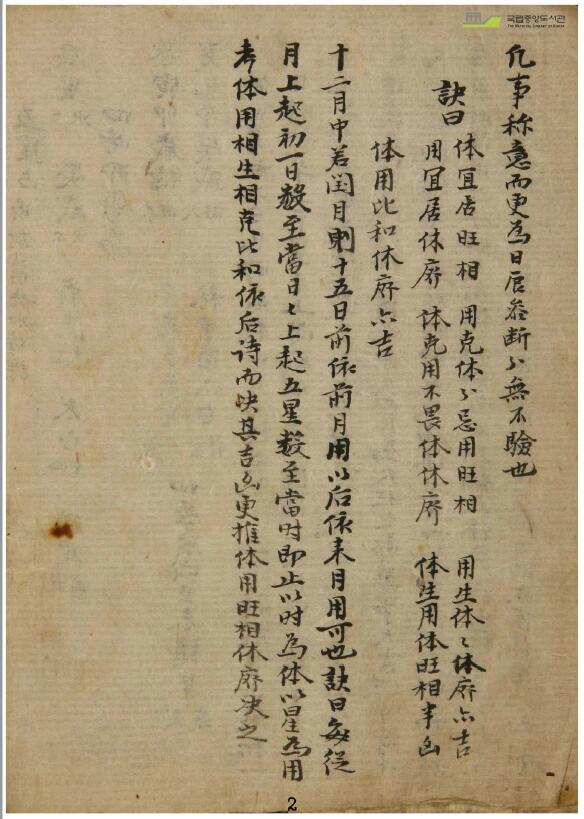 국립중앙도서관
THE NATIONAL LIBRARY OF KOREA
凡事称意而更為日辰參断少無不驗也
訣曰
体宜居旺相 用克体少忌用旺相 用生体〻体廃六吉
用宜居休廃 体克用不畏体休廃 体生用体旺相半凶
体用比和休廃六吉
十二月中若闰月則十五日前依前月用以后依来月用可也訣曰每從
月上起初一日数至當日〻上起五星数至當时即止以时為体以星為用
考体用相生相克比和依后诗而决其吉凶更推体用旺相休廃决之
2